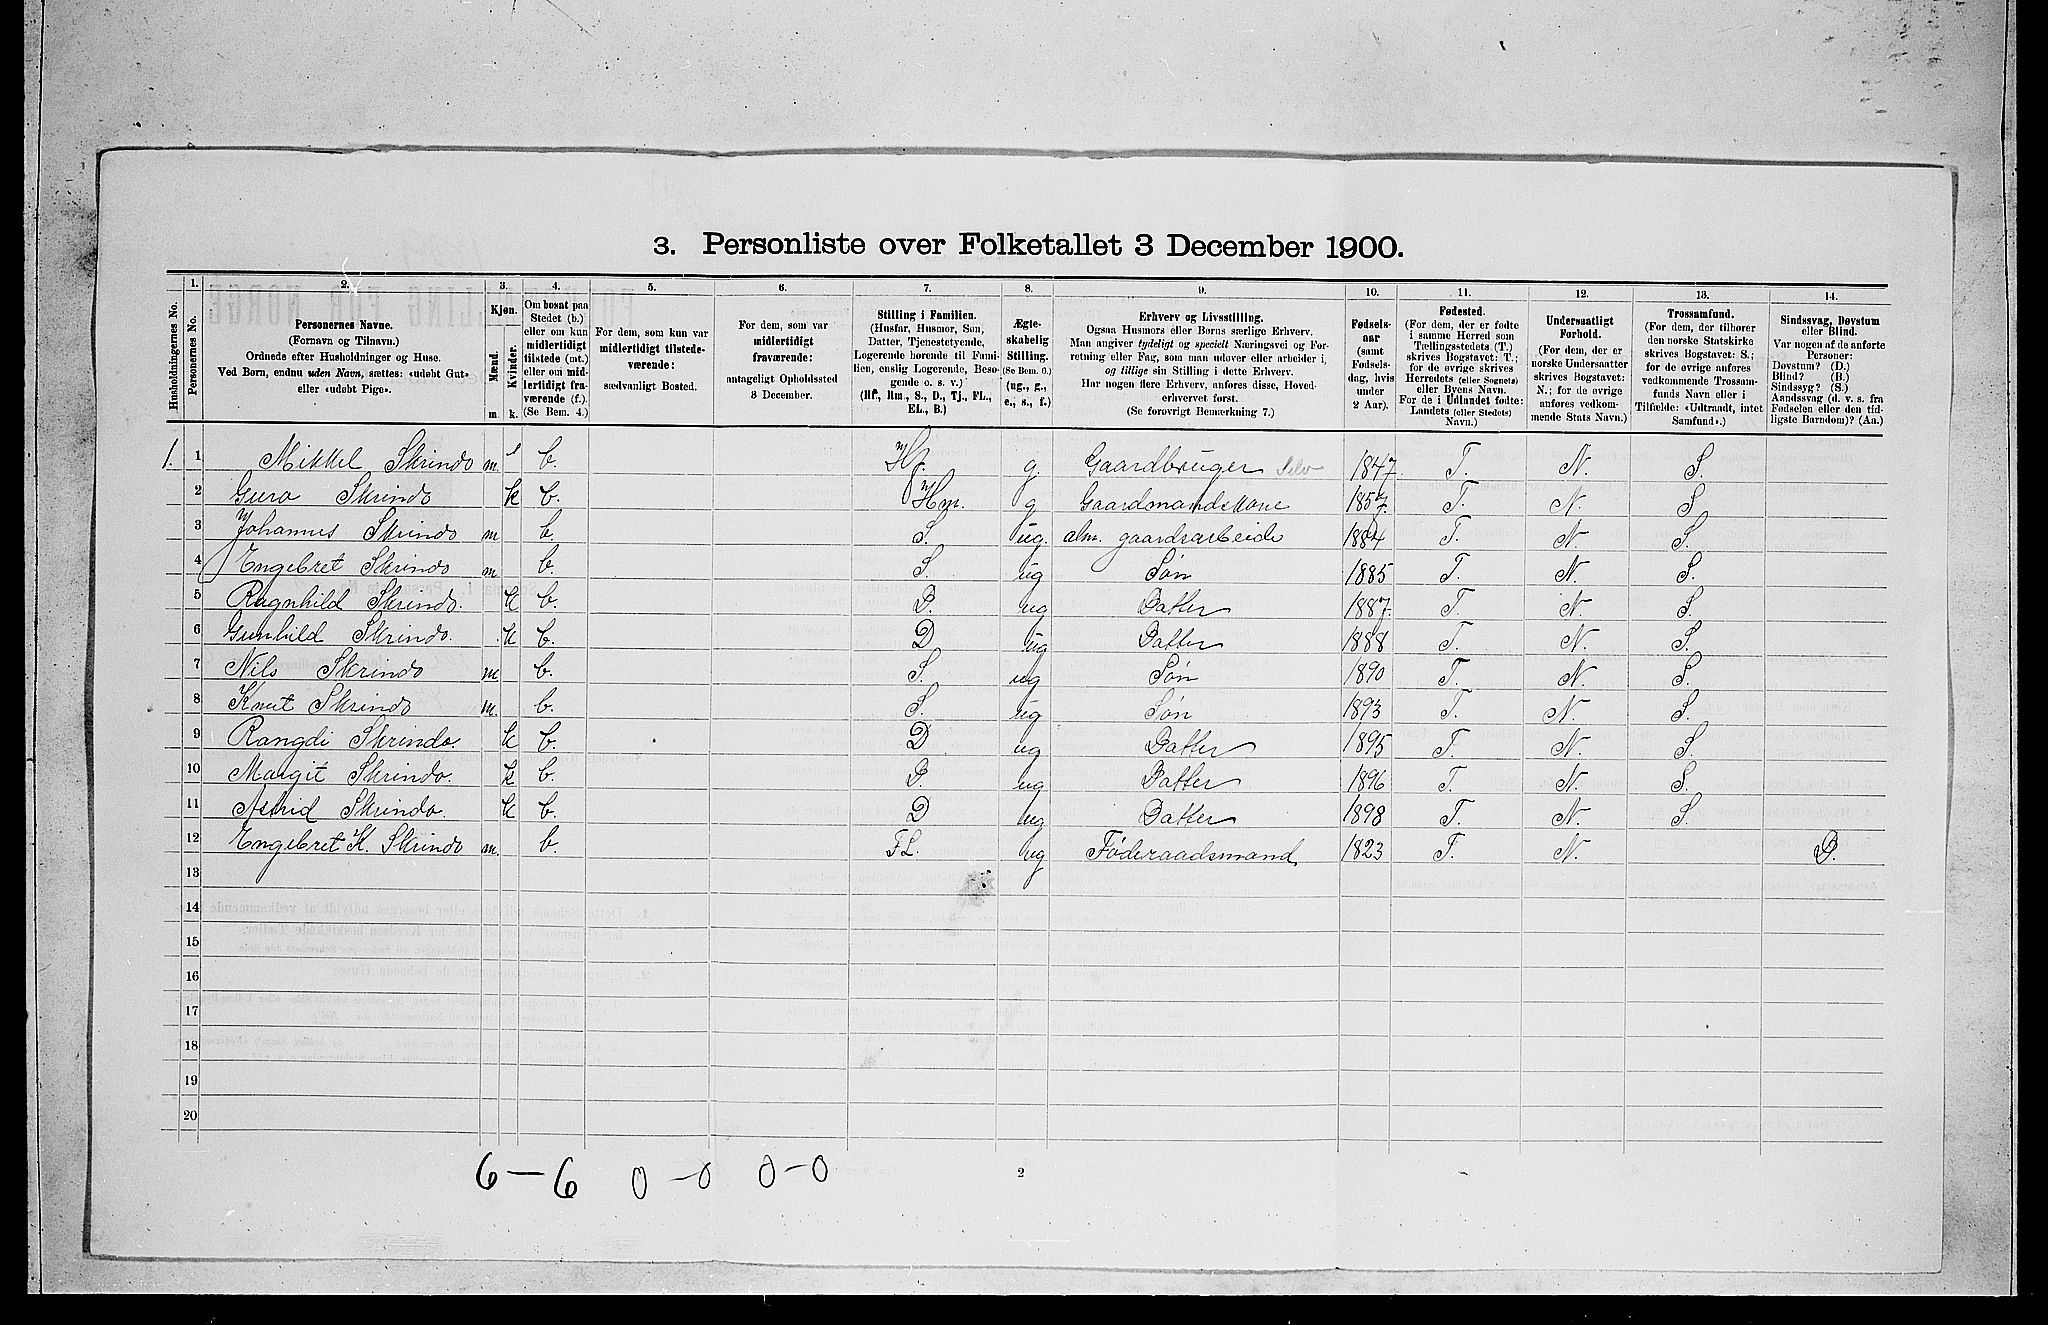 3. Personliste over Folketallet 3 December 1900.
Husholdningernes No.
1. Personernes No.
2. Personernes Navne. (Fornavn og Tilnavn.) Ordnede efter Husholdninger og Huse. Ved Børn, endnu uden Navn, sættes: «udøbt Gut» eller «udøbt Pige».
3. Kjøn. Mænd. m. Kvinder. k.
4. Om bosat paa Stedet (b.) eller om kun midlertidigt tilstede (mt.) eller om midlertidigt fraværende (f.). (Se Bem. 4.)
5. For dem, som kun var midlertidigt tilstedeværende: sædvanligt Bosted.
6. For dem, som var midlertidigt fraværende: antageligt Opholdssted 3 December.
7. Stilling i Familien. (Husfar, Husmor, Søn, Datter, Tjenestetyende, Logerende hørende til Familien, enslig Logerende, Besøgende o. s. v.) (Hf., Hm., S., D., Tj., FL., EL., B.)
8. Ægteskabelig Stilling. (Se Bem. 6.) (ug., g., e., s., f.)
9. Erhverv og Livsstilling. Ogsaa Husmors eller Børns særlige Erhverv. Man angiver tydeligt og specielt Næringsvei og Forretning eller Fag, som man udøver eller arbeider i, og tillige sin Stilling i dette Erhverv. Har nogen flere Erhverv, anføres disse, Hovederhvervet først. (Se forøvrigt Bemærkning 7.)
10. Fødselsaar (samt Fødselsdag, hvis under 2 Aar).
11. Fødested. (For dem, der er fødte i samme Herred som Tællingsstedets (T.) skrives Bogstavet: T.; for de øvrige skrives Herredets (eller Sognets) eller Byens Navn. For de i Udlandet fødte: Landets (eller Stedets) Navn.)
12. Undersaatligt Forhold. (For dem, der er norske Undersaatter skrives Bogstavet: N.; for de øvrige anføres vedkommende Stats Navn.)
13. Trossamfund. (For dem, der tilhører den norske Statskirke skrives Bogstavet: S.; for de øvrige anføres vedkommende Trossamfunds Navn eller i Tilfælde: «Udtraadt, intet Samfund».)
14. Sindssvag, Døvstum eller Blind. Var nogen af de anførte Personer: Døvstum? (D.) Blind? (B.) Sindssyg? (S.) Aandssvag (d. v. s. fra Fødselen eller den tidligste Barndom)? (Aa.)
1. 1 Mikkel Skrindo m. b. Hf. g. Gaardbruger Selv 1847 T. N. S.
2 Guro Skrindo k b. Hm. g Gaardmandskone 1857. T. N. S
3 Johannes Skrindo m b. S. ug. alm. gaardsarbeide 1884 T. N. S.
4 Engebret Skrindo m. b. S. ug Søn 1885 T. N. S.
5 Ragnhild Skrindo. k b. D. ug Datter 1887. T. N. S.
6 Gunhild Skrindo. k b. D ug Datter 1888 T. N. S.
7 Nils Skrindo m b. S. ug Søn 1890 T. N. S.
8 Knut Skrindo m. b. S. ug Søn 1893 T. N. S.
9 Rangdi Skrindo. k b. D ug Datter 1895 T. N. S.
10 Margit Skrindo. k b. D. ug Datter 1896 T. N. S.
11 Astrid Skrindo. k b. D ug Datter 1898 T. N. S.
12 Engebret K. Skrindo m. b. FL. ug Føderaadsmand 1823 T. N. D.
13
14
15
16
17
18
19
20
6 – 6 0 – 0 0 – 0
2